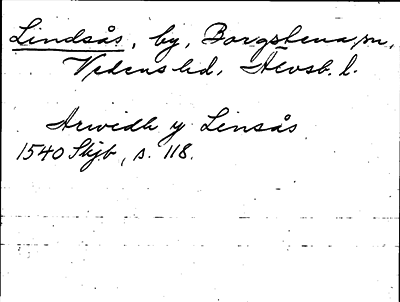 Lindsås, by, Borgstena sn,
Vedens hd, Älvsb. l.
Arwidh y Linsås
1540 Skjb, s. 118.